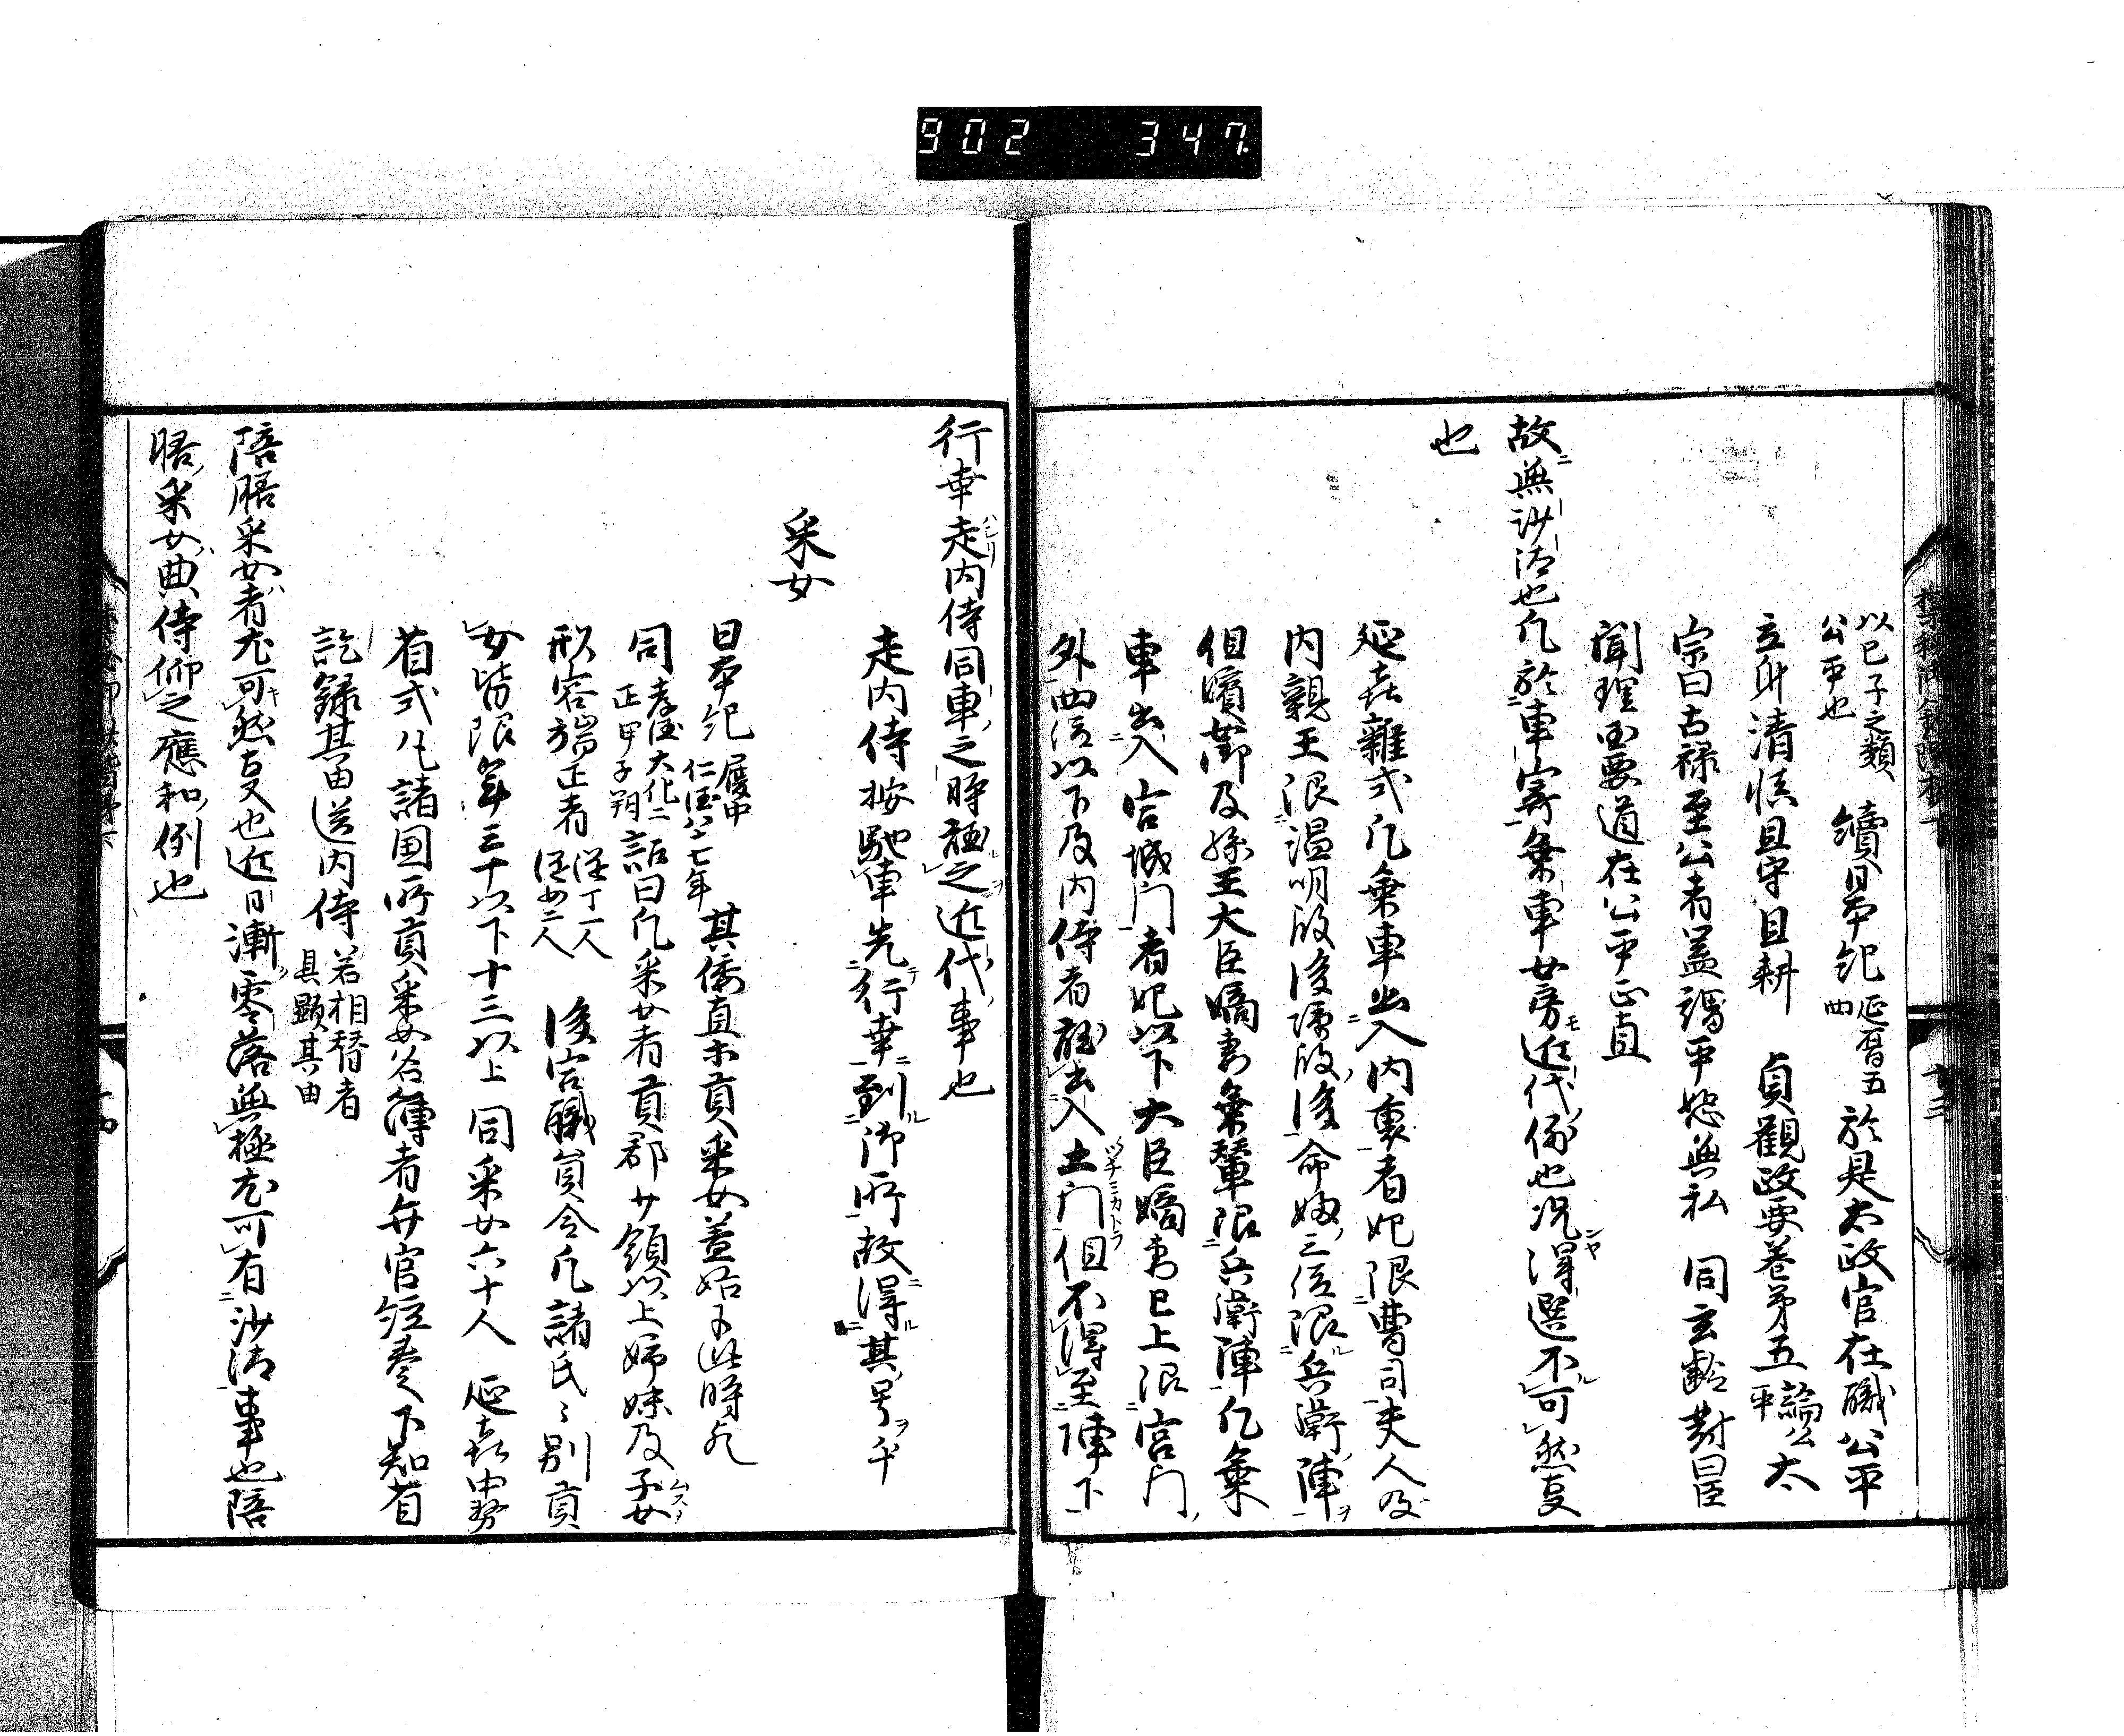 902 347.
以己子之類
公平也
續日本紀 延曆五
四 於是太政官在職公平
立身清慎且守且耕 貞觀政要卷第五 論公
平 太
宗曰古稱至公者蓋謂平恕無私 同玄齡對曰臣
聞理国要道在公平正直
故無沙汰也凡於車寄乗車女房近代例也況得選不可然支
也
延喜雜式凡乗車出入内裏者妃限曹司夫人及
内親王限温明殿後凉殿後命婦三位限兵衛陣
但嬪御及孫王大臣嫡妻乗輦限兵衛陣凡乗
車出入宮城門者妃以下大臣嫡妻已上限宮門
外四位以下及内侍者聴出入土門但不得至陣下
行幸走内侍同車之時聴之近代事也
走内侍按馳車先行幸到御所故得其号乎
采女
日本紀 履中
仁徳八十七年 其倭直等貢采女蓋始于此時歟
同 孝徳大化二
正甲子朔 詔曰凡采女者貢郡少領以上姉妹及子女
形容端正者 従丁一人
従女二人 後宮職員令凡諸氏々別貢
女皆限年三十以下十三以上 同采女六十人 延喜中務
省式凡諸国所貢采女名簿者弁官經奏下知省
訖録其由送内侍 若相替者
具顕其由
陪膳采女者尤可然支也近日漸零落無極尤可有沙汰事也陪
膳采女典侍仰之應和例也